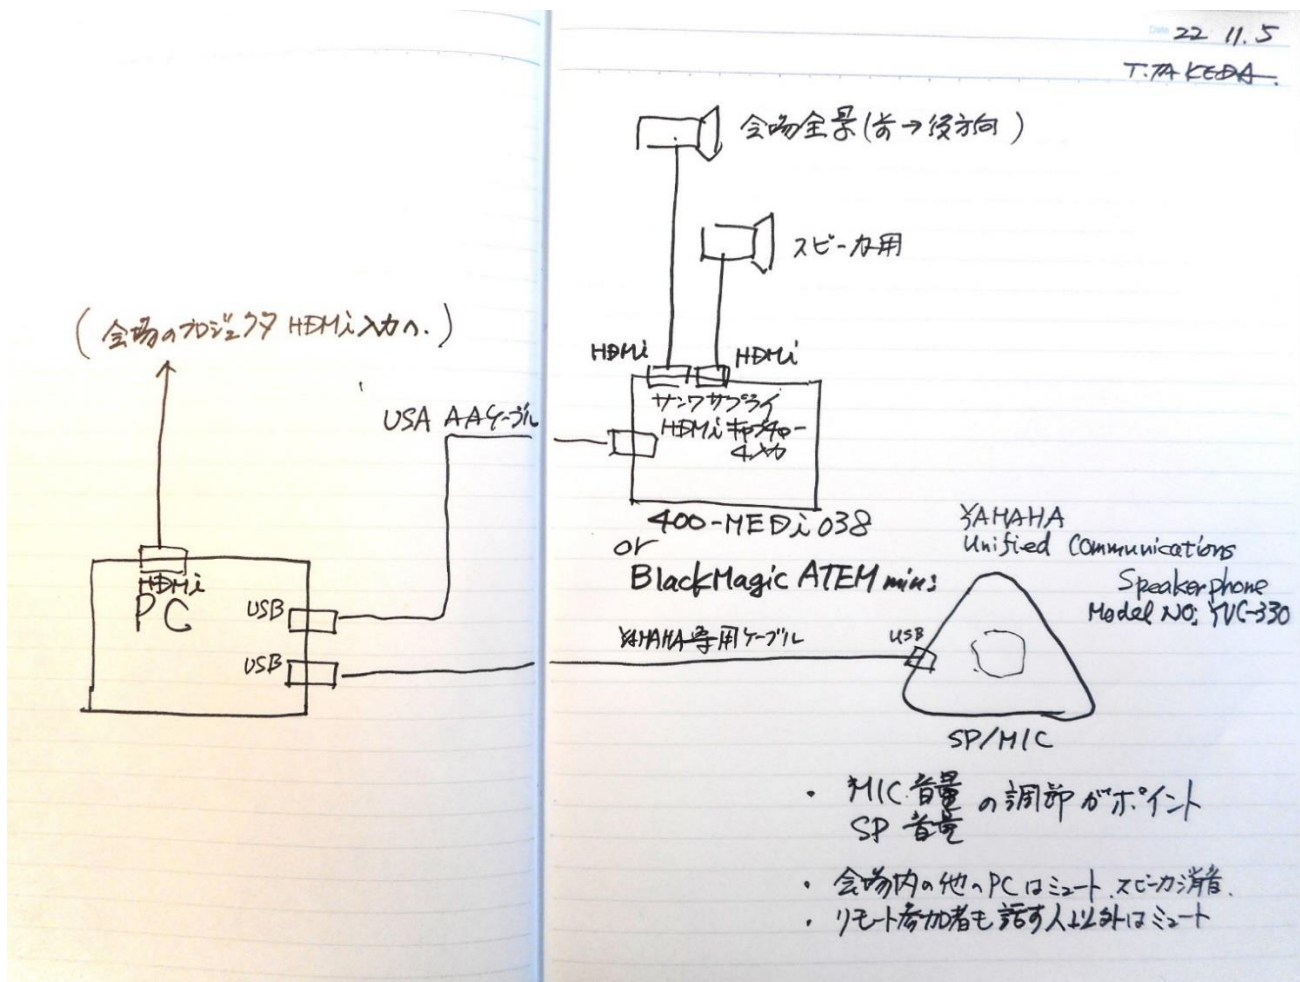 Date 22 11.5
T.TAKEDA
会場全景(前→後方向)
スピーカ用
(会場のプロジェクタ HDMi入力へ.)
HDMi
HDMi
USA AAケーブル
サンワサプライ
HDMiキャプチャー
4入力
400-MEDi038
or
BlackMagic ATEM mini
YAMAHA
Unified Communications
Speakerphone
Model NO: YVC-330
HDMi
PC
USB
USB
YAMAHA専用ケーブル
USB
SP/MIC
・ MIC 音量 の調節がポイント
SP 音量
・ 会場内の他のPCはミュート、スピーカ消音.
・ リモート参加者も話す人以外はミュート